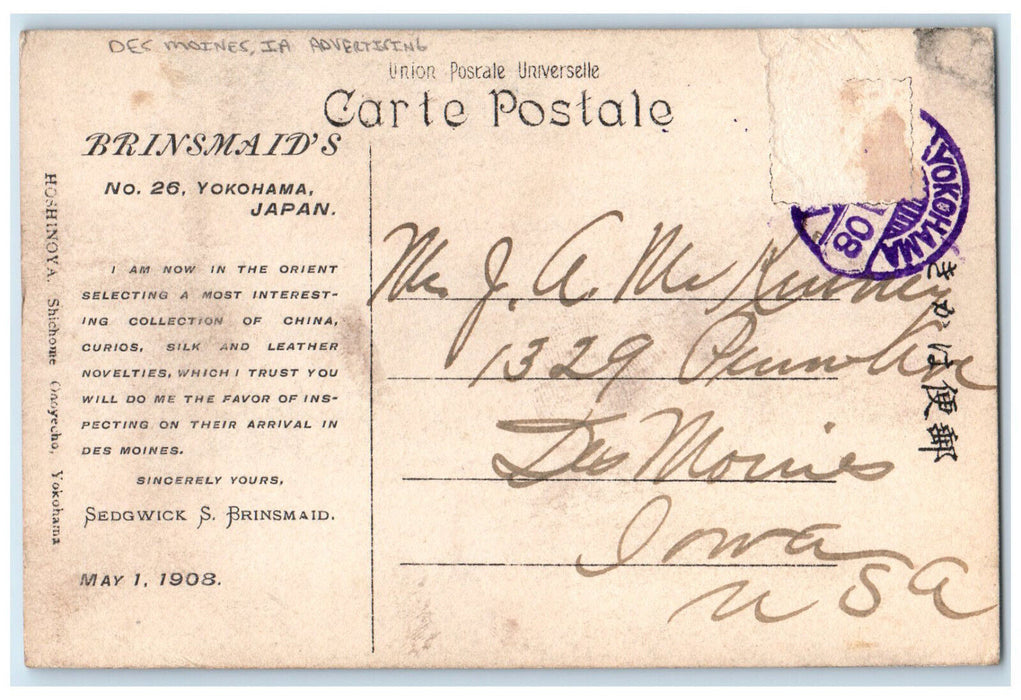 DES MOINES, IA ADVERTISING
Union Postale Universelle
Carte Postale
BRINSMAID'S
No. 26, YOKOHAMA,
JAPAN.
I AM NOW IN THE ORIENT
SELECTING A MOST INTEREST-
ING COLLECTION OF CHINA,
CURIOS, SILK AND LEATHER
NOVELTIES, WHICH I TRUST YOU
WILL DO ME THE FAVOR OF INS-
PECTING ON THEIR ARRIVAL IN
DES MOINES.
SINCERELY YOURS,
SEDGWICK S. BRINSMAID.
MAY 1, 1908.
HOSHINOYA. Shichome Onoyecho, Yokohama
YOKOHAMA
08
Mr. J. A. McKinney
1329 Penn Ave
Des Moines
Iowa
USA
きかは便郵